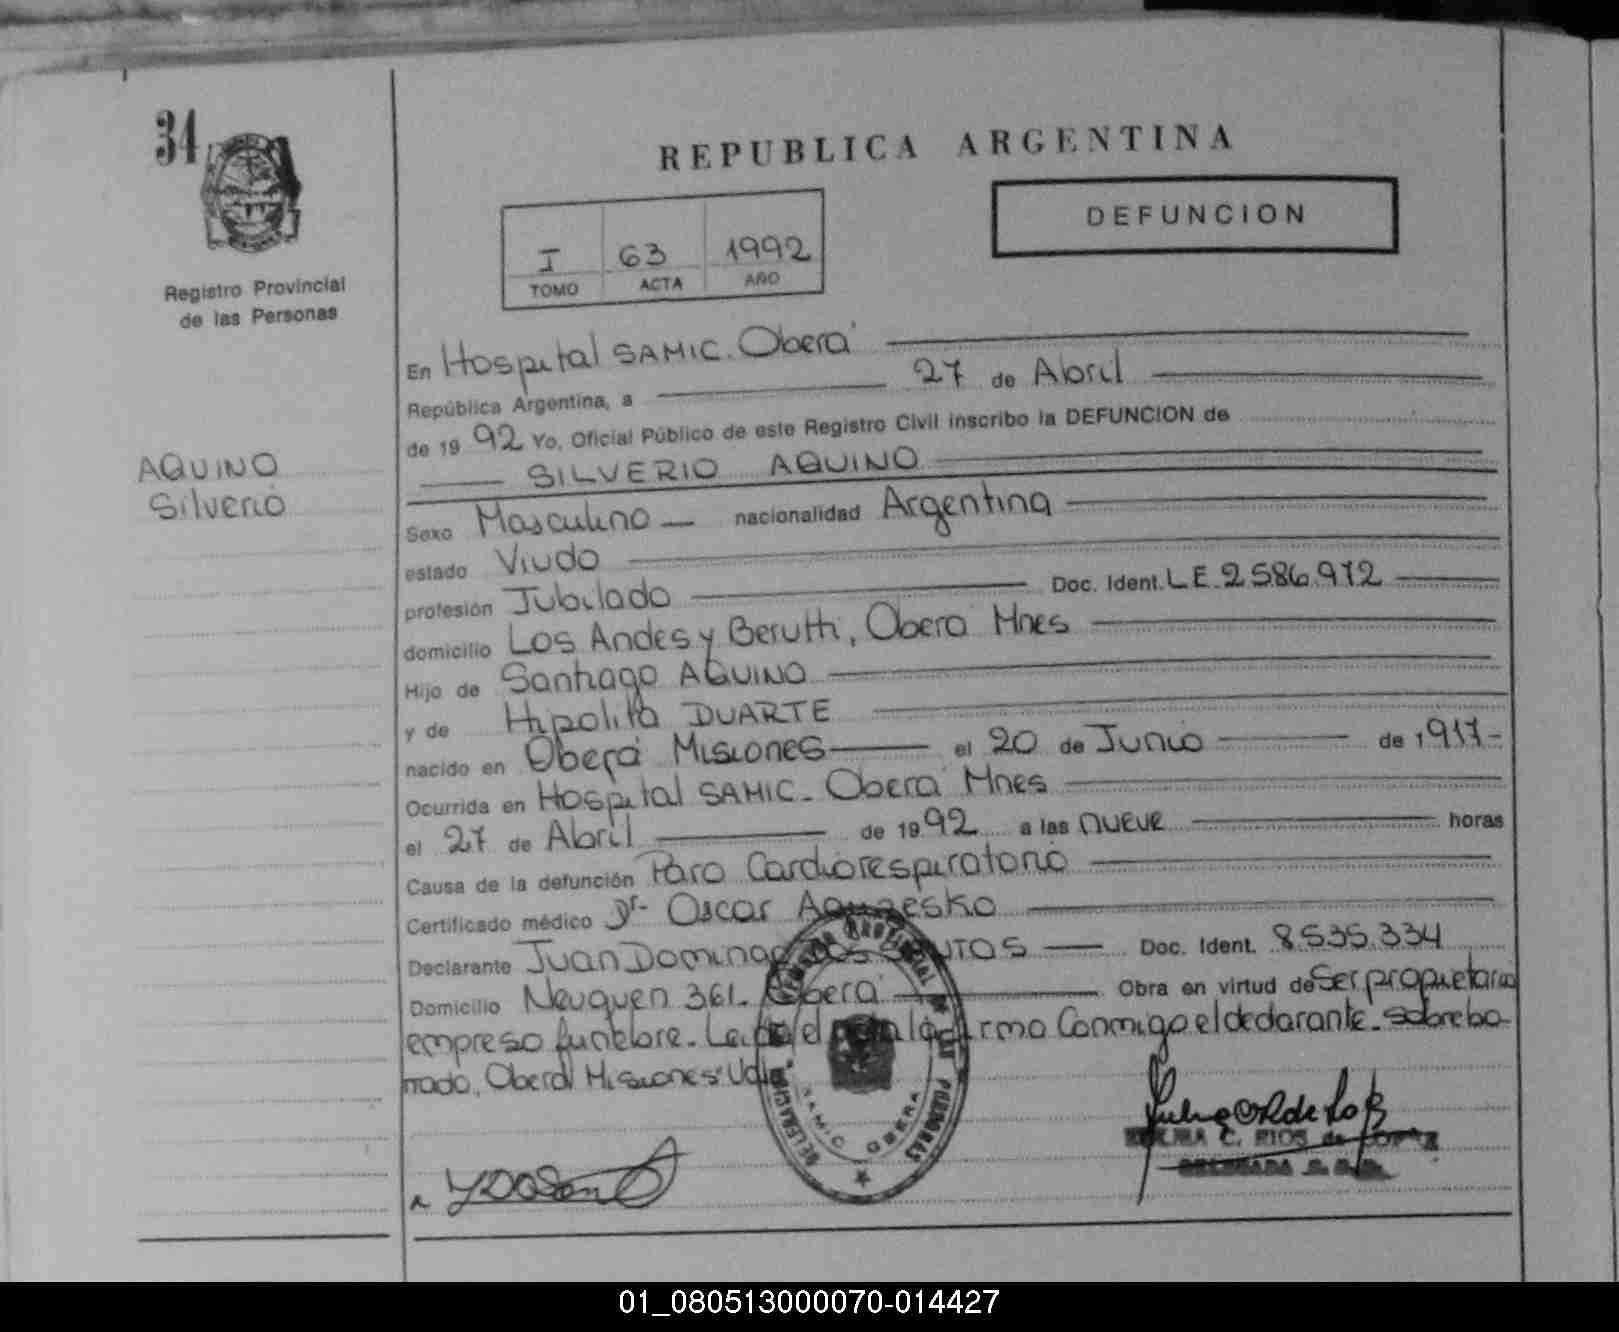 34
REPUBLICA ARGENTINA
DEFUNCION
I 63 1992
TOMO ACTA AÑO
Registro Provincial
de las Personas
AQUINO
Silverio
En Hospital SAMIC. Oberá
República Argentina, a 27 de Abril
de 1992 Yo, Oficial Público de este Registro Civil inscribo la DEFUNCION de
SILVERIO AQUINO
Sexo Masculino nacionalidad Argentina
estado Viudo
profesión Jubilado Doc. Ident. L.E. 2586.972
domicilio Los Andes y Berutti, Oberá Mnes
Hijo de Santiago AQUINO
y de Hipolita DUARTE
nacido en Oberá Misiones el 20 de Junio de 1917-
Ocurrida en Hospital SAMIC. Oberá Mnes
el 27 de Abril de 1992 a las nueve horas
Causa de la defunción Paro Cardiorespiratorio
Certificado médico Dr- Oscar
Declarante Juan Domingo DOS SANTOS Doc. Ident. 8.535.334
Domicilio Neuquen 361. Oberá Obra en virtud de Ser propietario
empresa funebre. Leida el acta la firma Conmigo el declarante. sobrebo-
rrado, Oberá Misiones
DELEGACION SAMIC OBERA
C. RIOS de LOPEZ
DELEGADA
01_080513000070-014427